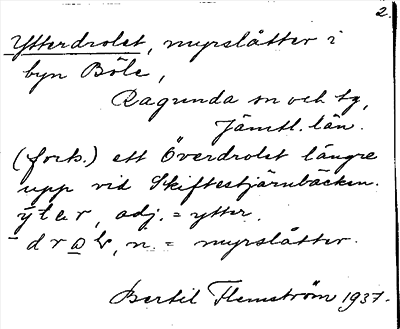 2.
Ytterdrolet, myrslåtter i
byn Böle,
Ragunda sn och tg,
Jämtl. län.
(forts.) ett Överdrolet längre
upp vid Skiftestjärnbäcken.
adj. = ytter.
n. = myrslåtter.
Bertil Flemström 1937.